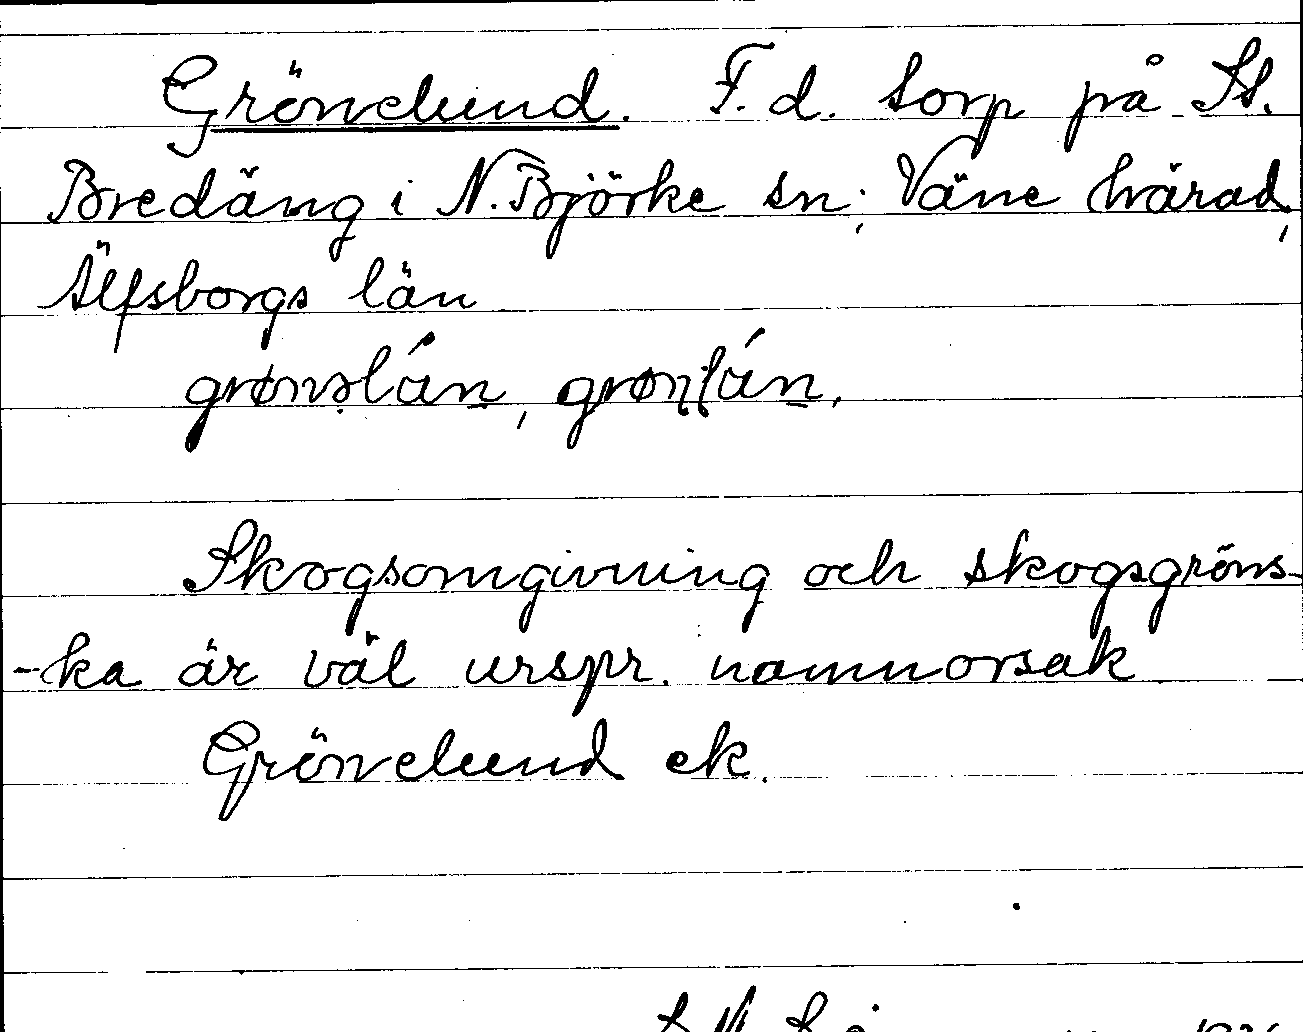 Grönelund. F. d. torp på St.
Bredäng i N. Björke sn; Väne härad,
Älfsborgs län
Skogsomgivning och skogsgröns-
-ka är väl urspr. namnorsak
Grönelund ek.